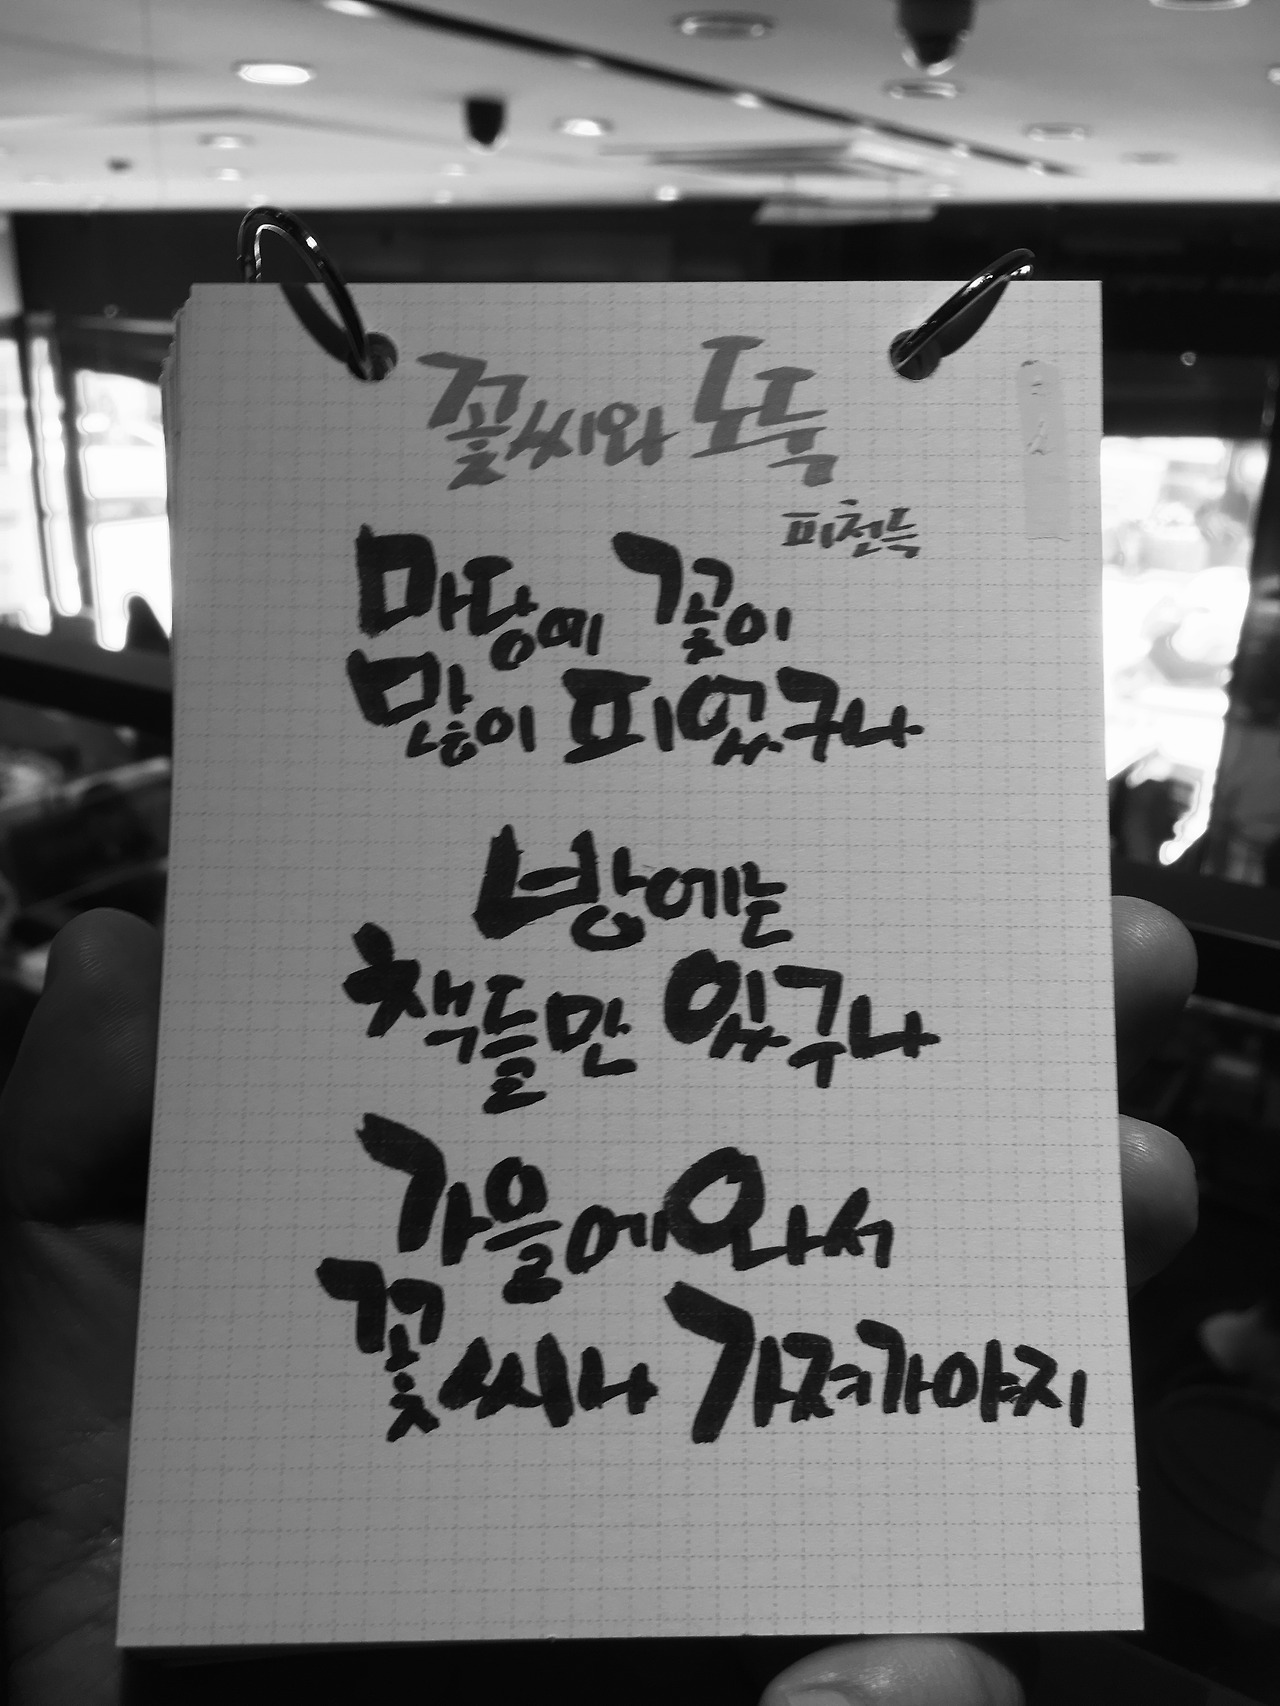 꽃씨와 도둑
피천득
마당에 꽃이
많이 피었구나
방에는
책들만 있구나
가을에 와서
꽃씨나 가져가야지